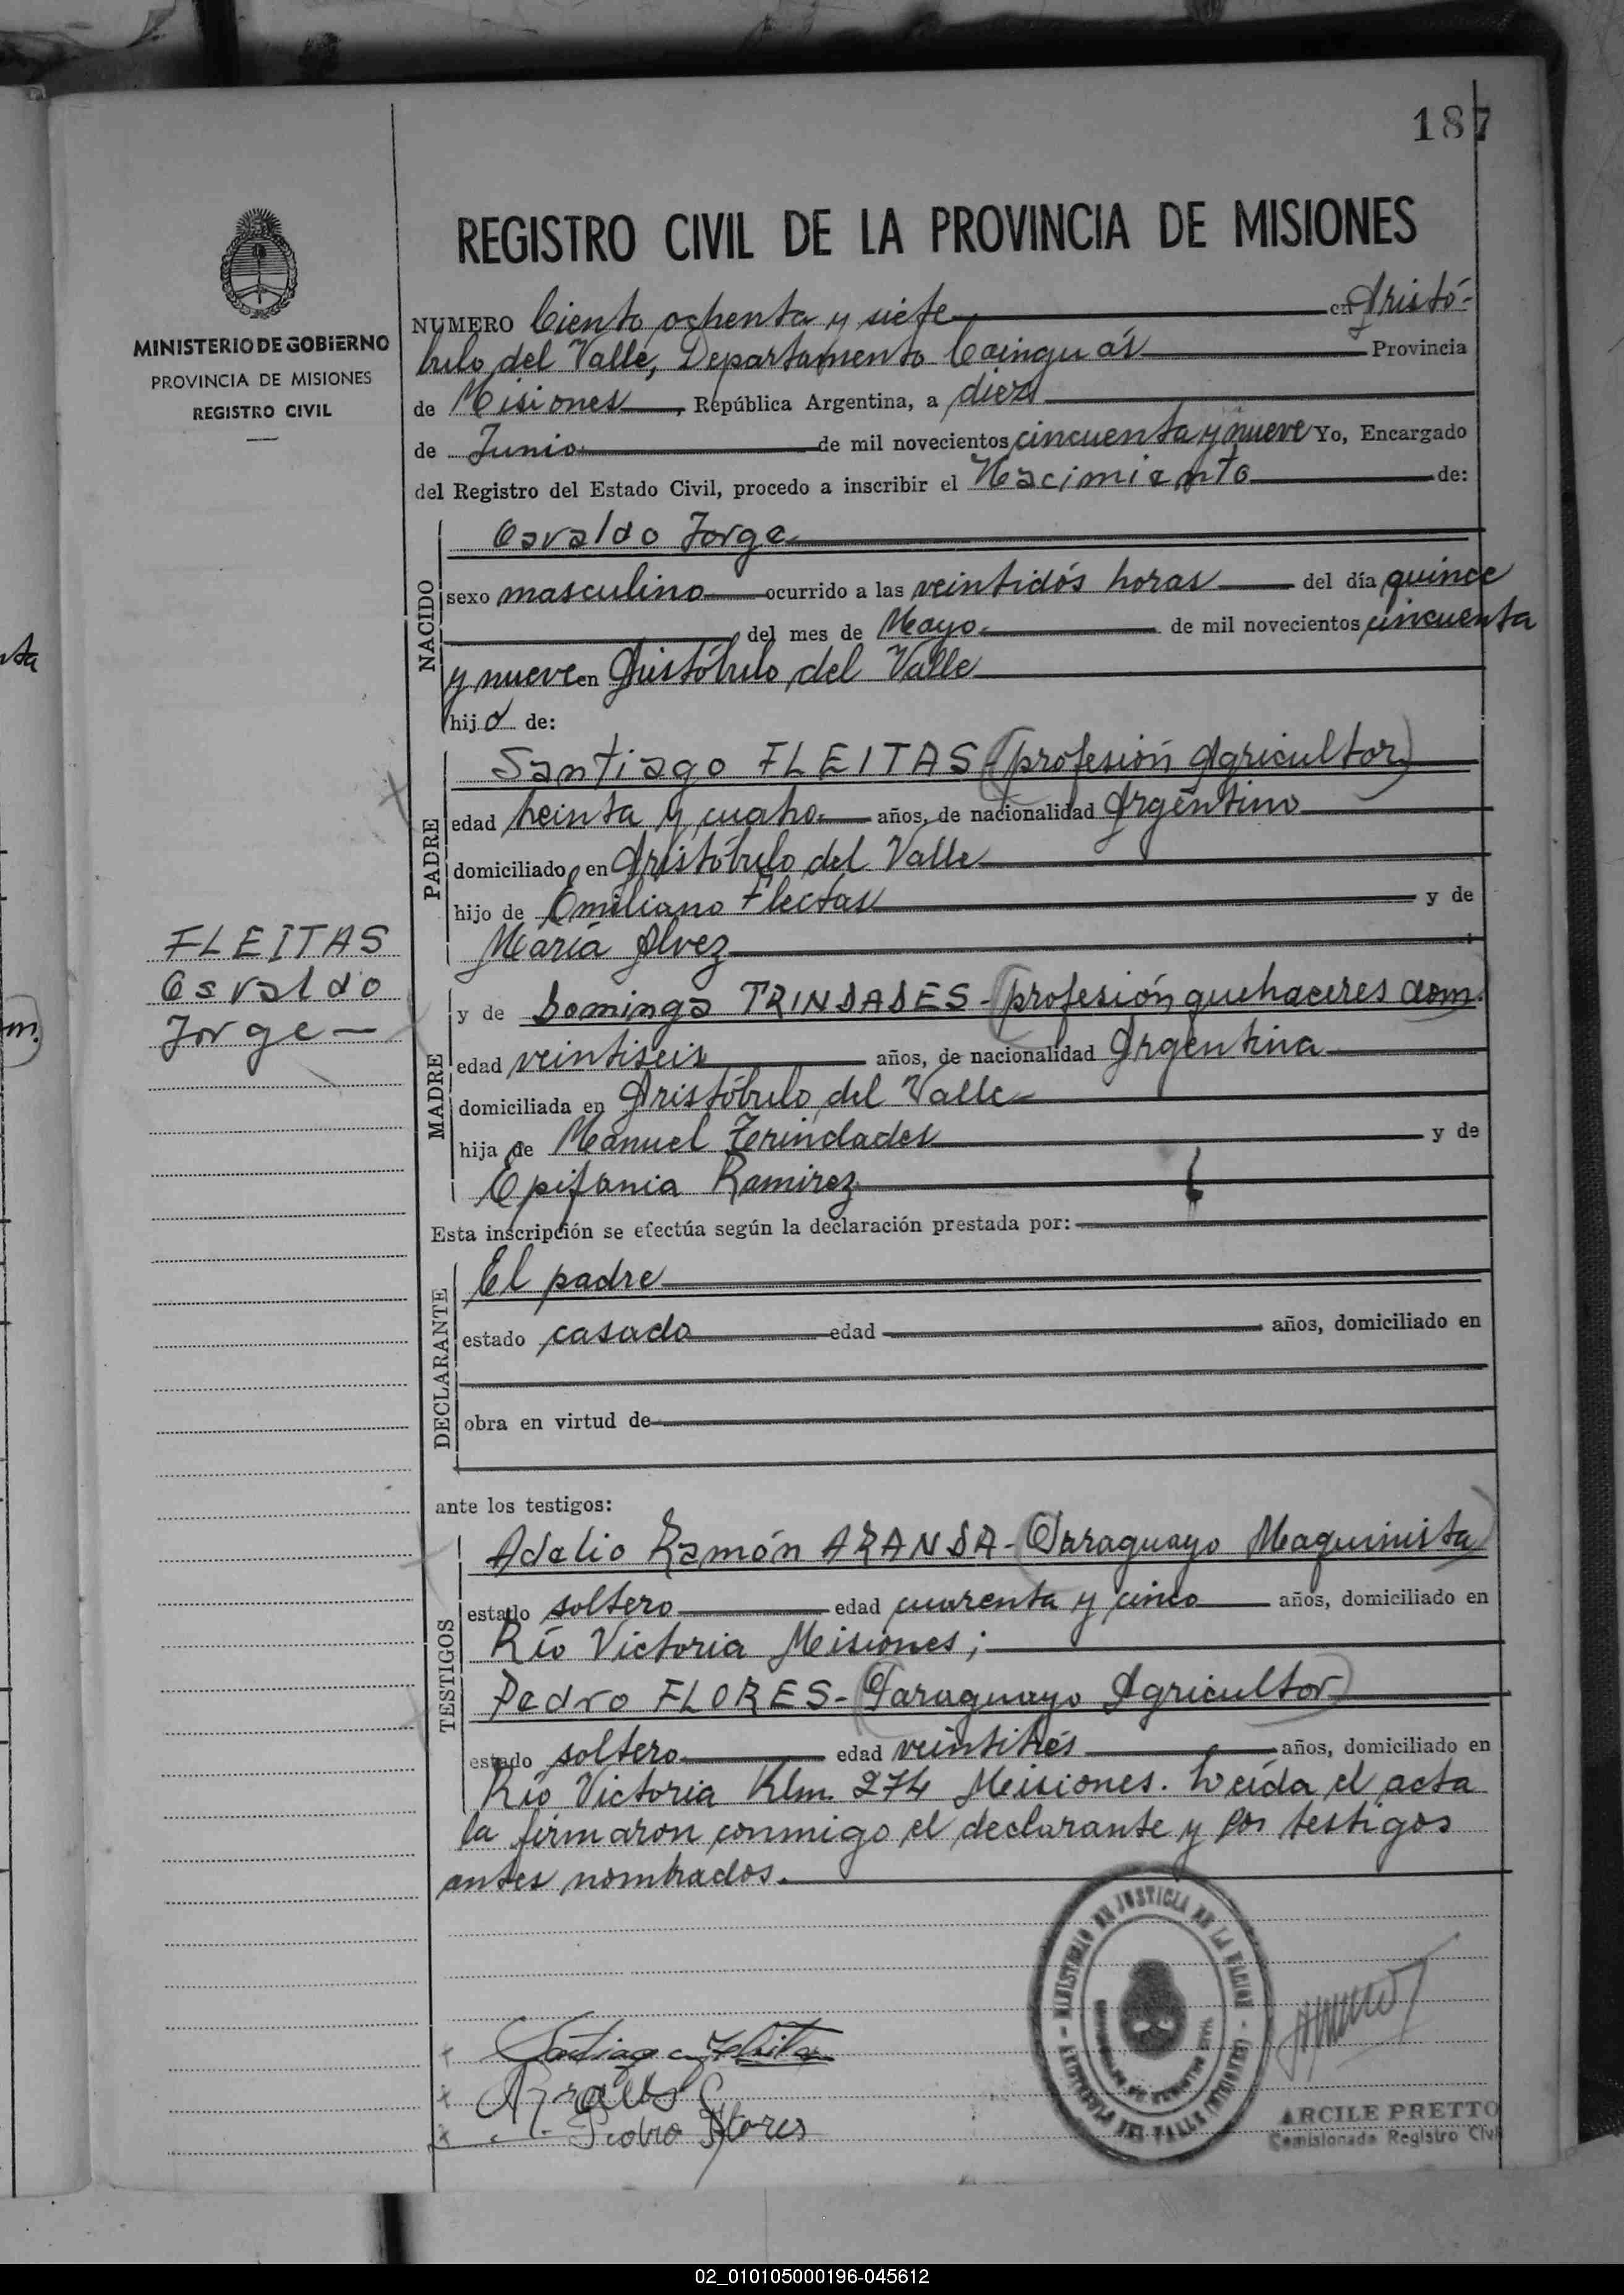 187
REGISTRO CIVIL DE LA PROVINCIA DE MISIONES
MINISTERIO DE GOBIERNO
PROVINCIA DE MISIONES
REGISTRO CIVIL
NUMERO Ciento ochenta y siete en Aristó-
bulo del Valle, Departamento Cainguás Provincia
de Misiones, República Argentina, a diez
de Junio de mil novecientos cincuenta y nueve Yo, Encargado
del Registro del Estado Civil, procedo a inscribir el Nacimiento de:
NACIDO
Osvaldo Jorge
sexo masculino ocurrido a las veintidós horas del día quince
del mes de Mayo de mil novecientos cincuenta
y nueve en Aristóbulo del Valle
hijo de:
PADRE
Santiago FLEITAS - (profesión Agricultor)
edad treinta y cuatro años, de nacionalidad Argentino
domiciliado en Aristóbulo del Valle
hijo de Emiliano Fleitas y de
María Alvez
FLEITAS
Osvaldo
Jorge
MADRE
y de Dominga TRINDADES - (profesión quehaceres dom.)
edad veintiseis años, de nacionalidad Argentina
domiciliada en Aristóbulo del Valle
hija de Manuel Terindades y de
Epifania Ramirez
Esta inscripción se efectúa según la declaración prestada por:
DECLARANTE
El padre
estado casado edad años, domiciliado en
obra en virtud de
ante los testigos:
TESTIGOS
Adelio Ramón ARANDA - (Paraguayo Maquinista)
estado soltero edad cuarenta y cinco años, domiciliado en
Río Victoria Misiones;
Pedro FLORES - (Paraguayo Agricultor)
estado soltero edad veintitrés años, domiciliado en
Río Victoria Klm. 274 Misiones. Leída el acta
la firmaron conmigo el declarante y los testigos
antes nombrados.
MINISTERIO DE JUSTICIA DE LA NACION
ARISTOBULO DEL VALLE (MISIONES)
Santiago Fleita
Pedro Flores
ARCILE PRETTO
Comisionada Registro Civil
02_010105000196-045612